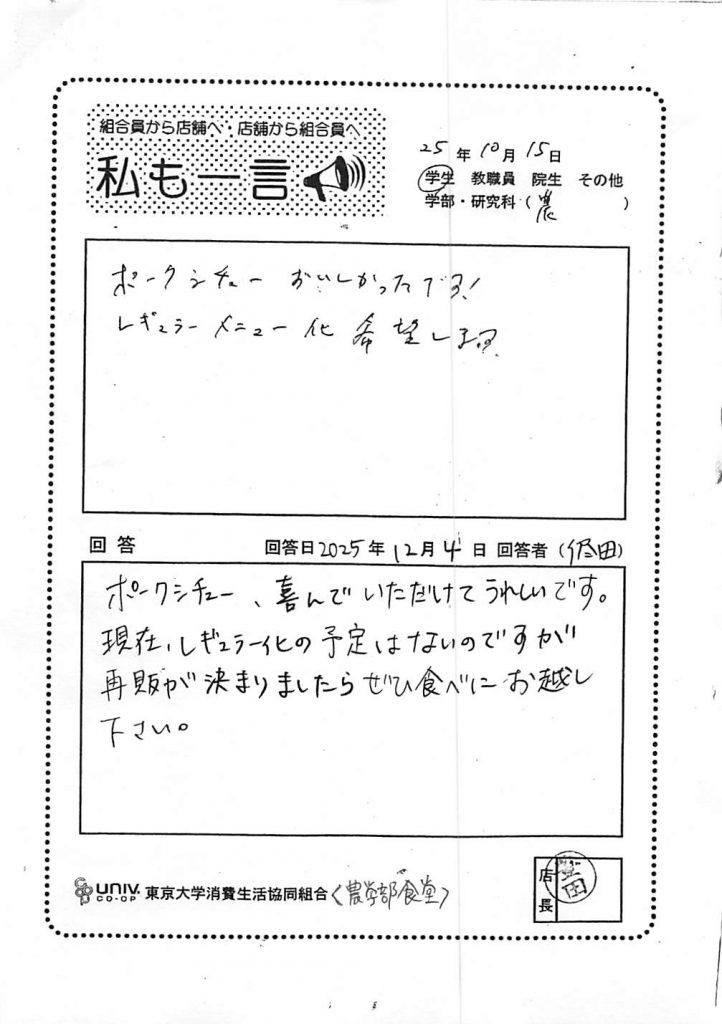 組合員から店舗へ・店舗から組合員へ
私も一言
25年10月15日
学生 教職員 院生 その他
学部・研究科(農)
ポークシチュー おいしかったです!
レギュラーメニュー化 希望します。
回答 回答日2025年12月4日 回答者(田)
ポークシチュー、喜んでいただけてうれしいです。
現在、レギュラー化の予定はないのですが
再販が決まりましたらぜひ食べにお越し
下さい。
UNIV. CO-OP 東京大学消費生活協同組合〈農学部食堂〉
店長